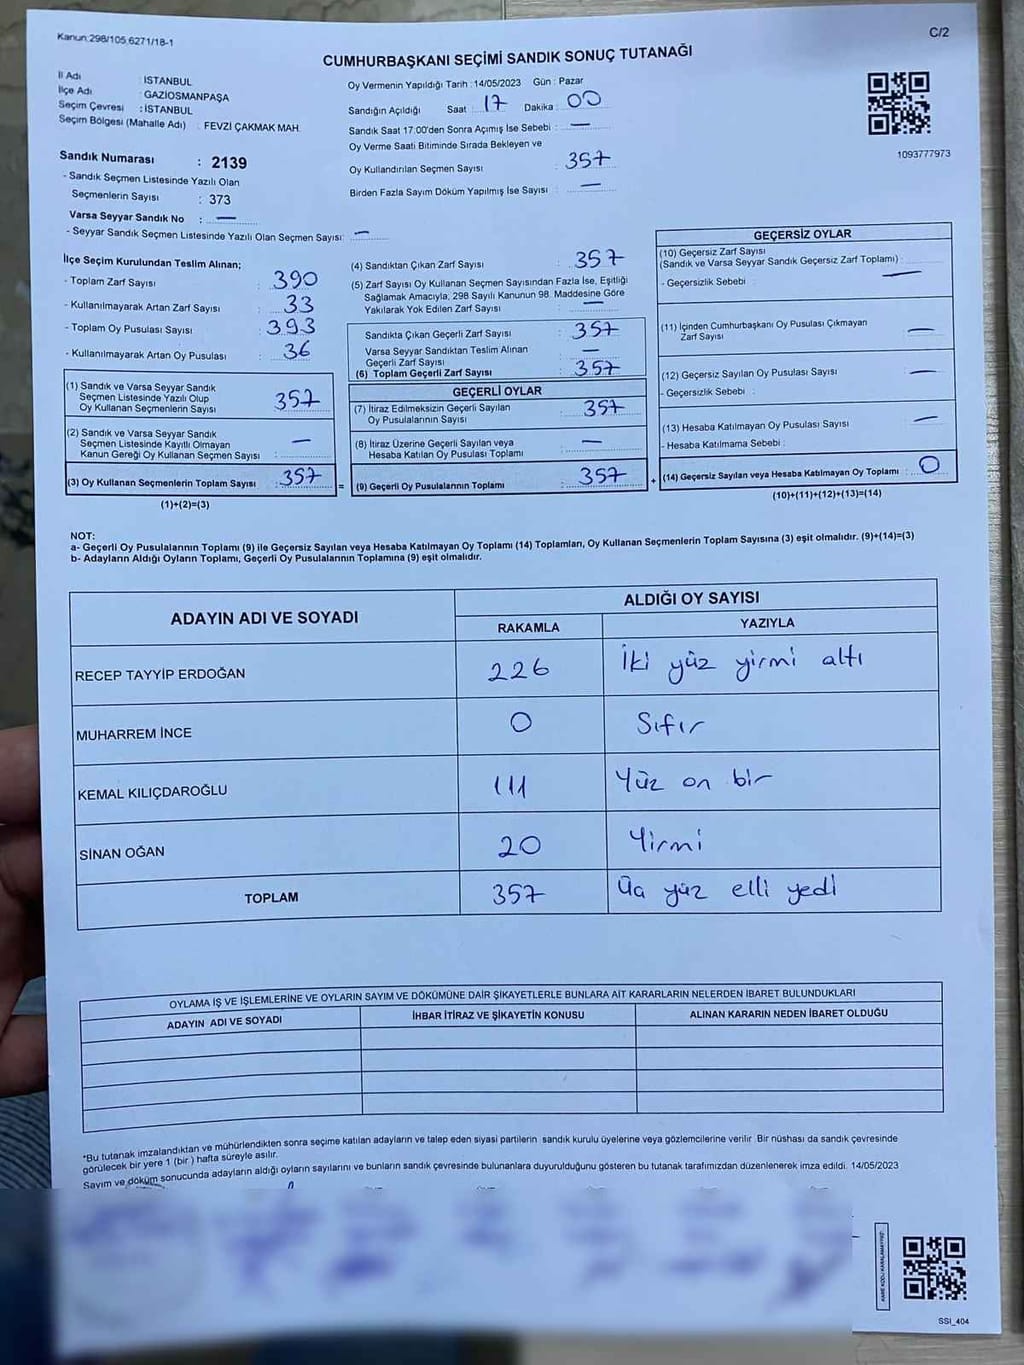 Kanun:298/105,6271/18-1
C/2
CUMHURBAŞKANI SEÇİMİ SANDIK SONUÇ TUTANAĞI
İl Adı : İSTANBUL
İlçe Adı : GAZİOSMANPAŞA
Seçim Çevresi : İSTANBUL
Seçim Bölgesi (Mahalle Adı) : FEVZİ ÇAKMAK MAH.
Sandık Numarası : 2139
- Sandık Seçmen Listesinde Yazılı Olan
Seçmenlerin Sayısı : 373
Varsa Seyyar Sandık No : —
- Seyyar Sandık Seçmen Listesinde Yazılı Olan Seçmen Sayısı: —
Oy Vermenin Yapıldığı Tarih : 14/05/2023 Gün : Pazar
Sandığın Açıldığı Saat : 17 Dakika : 00
Sandık Saat 17:00'den Sonra Açımış İse Sebebi : —
Oy Verme Saati Bitiminde Sırada Bekleyen ve
Oy Kullandırılan Seçmen Sayısı : 357
Birden Fazla Sayım Döküm Yapılmış İse Sayısı : —
1093777973
İlçe Seçim Kurulundan Teslim Alınan;
- Toplam Zarf Sayısı : 390
- Kullanılmayarak Artan Zarf Sayısı : 33
- Toplam Oy Pusulası Sayısı : 393
- Kullanılmayarak Artan Oy Pusulası : 36
(1) Sandık ve Varsa Seyyar Sandık
Seçmen Listesinde Yazılı Olup
Oy Kullanan Seçmenlerin Sayısı : 357
(2) Sandık ve Varsa Seyyar Sandık
Seçmen Listesinde Kayıtlı Olmayan
Kanun Gereği Oy Kullanan Seçmen Sayısı : —
(3) Oy Kullanan Seçmenlerin Toplam Sayısı : 357
(1)+(2)=(3)
=
(4) Sandıktan Çıkan Zarf Sayısı : 357
(5) Zarf Sayısı Oy Kullanan Seçmen Sayısından Fazla İse, Eşitliği
Sağlamak Amacıyla, 298 Sayılı Kanunun 98. Maddesine Göre
Yakılarak Yok Edilen Zarf Sayısı : —
Sandıkta Çıkan Geçerli Zarf Sayısı : 357
Varsa Seyyar Sandıktan Teslim Alınan
Geçerli Zarf Sayısı : —
(6) Toplam Geçerli Zarf Sayısı : 357
GEÇERLİ OYLAR
(7) İtiraz Edilmeksizin Geçerli Sayılan
Oy Pusulalarının Sayısı : 357
(8) İtiraz Üzerine Geçerli Sayılan veya
Hesaba Katılan Oy Pusulası Toplamı : —
(9) Geçerli Oy Pusulalarının Toplamı : 357
+
GEÇERSİZ OYLAR
(10) Geçersiz Zarf Sayısı
(Sandık ve Varsa Seyyar Sandık Geçersiz Zarf Toplamı) : —
- Geçersizlik Sebebi :
(11) İçinden Cumhurbaşkanı Oy Pusulası Çıkmayan
Zarf Sayısı : —
(12) Geçersiz Sayılan Oy Pusulası Sayısı : —
- Geçersizlik Sebebi :
(13) Hesaba Katılmayan Oy Pusulası Sayısı : —
- Hesaba Katılmama Sebebi :
(14) Geçersiz Sayılan veya Hesaba Katılmayan Oy Toplamı : 0
(10)+(11)+(12)+(13)=(14)
NOT:
a- Geçerli Oy Pusulalarının Toplamı (9) ile Geçersiz Sayılan veya Hesaba Katılmayan Oy Toplamı (14) Toplamları, Oy Kullanan Seçmenlerin Toplam Sayısına (3) eşit olmalıdır. (9)+(14)=(3)
b- Adayların Aldığı Oyların Toplamı, Geçerli Oy Pusulalarının Toplamına (9) eşit olmalıdır.
ADAYIN ADI VE SOYADI
ALDIĞI OY SAYISI
RAKAMLA YAZIYLA
RECEP TAYYİP ERDOĞAN 226 İki yüz yirmi altı
MUHARREM İNCE 0 Sıfır
KEMAL KILIÇDAROĞLU 111 Yüz on bir
SİNAN OĞAN 20 Yirmi
TOPLAM 357 Üç yüz elli yedi
OYLAMA İŞ VE İŞLEMLERİNE VE OYLARIN SAYIM VE DÖKÜMÜNE DAİR ŞİKAYETLERLE BUNLARA AİT KARARLARIN NELERDEN İBARET BULUNDUKLARI
ADAYIN ADI VE SOYADI İHBAR İTİRAZ VE ŞİKAYETİN KONUSU ALINAN KARARIN NEDEN İBARET OLDUĞU
*Bu tutanak imzalandıktan ve mühürlendikten sonra seçime katılan adayların ve talep eden siyasi partilerin sandık kurulu üyelerine veya gözlemcilerine verilir. Bir nüshası da sandık çevresinde
görülecek bir yere 1 (bir) hafta süreyle asılır.
Sayım ve döküm sonucunda adayların aldığı oyların sayılarını ve bunların sandık çevresinde bulunanlara duyurulduğunu gösteren bu tutanak tarafımızdan düzenlenerek imza edildi. 14/05/2023
SSI_404